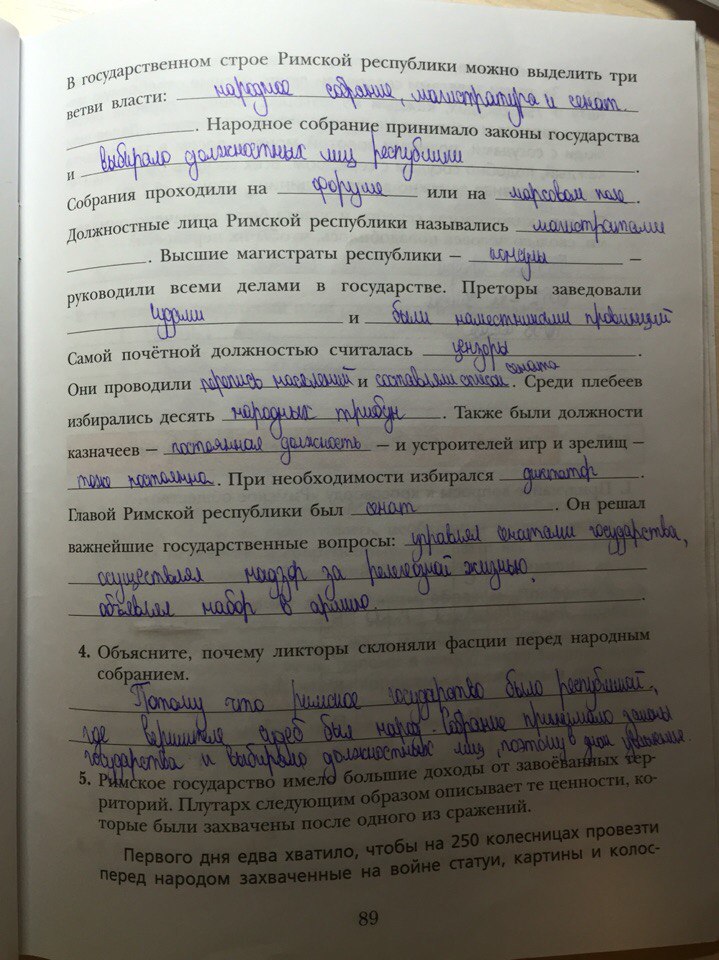 В государственном строе Римской республики можно выделить три
ветви власти: народное собрание, магистратура и сенат.
. Народное собрание принимало законы государства
и выбирало должностных лиц республики.
Собрания проходили на форуме или на марсовом поле.
Должностные лица Римской республики назывались магистратами
. Высшие магистраты республики – консулы –
руководили всеми делами в государстве. Преторы заведовали
судами и были наместниками провинций
Самой почётной должностью считалась цензоры.
Они проводили перепись населений и составляли список сената. Среди плебеев
избирались десять народных трибун. Также были должности
казначеев – постоянная должность – и устроителей игр и зрелищ –
тоже постоянна. При необходимости избирался диктатор.
Главой Римской республики был сенат. Он решал
важнейшие государственные вопросы: управлял сенатами государства,
осуществлял надзор за религеозной жизнью,
объявлял набор в армию.
4. Объясните, почему ликторы склоняли фасции перед народным
собранием.
Потому что римское государство было республикой,
где вершителе судеб был народ. Собрание принимало законы
государства и выбирало должностных лиц, поэтому в знак уважения.
5. Римское государство имело большие доходы от завоёванных тер-
риторий. Плутарх следующим образом описывает те ценности, ко-
торые были захвачены после одного из сражений.
Первого дня едва хватило, чтобы на 250 колесницах провезти
перед народом захваченные на войне статуи, картины и колос-
89